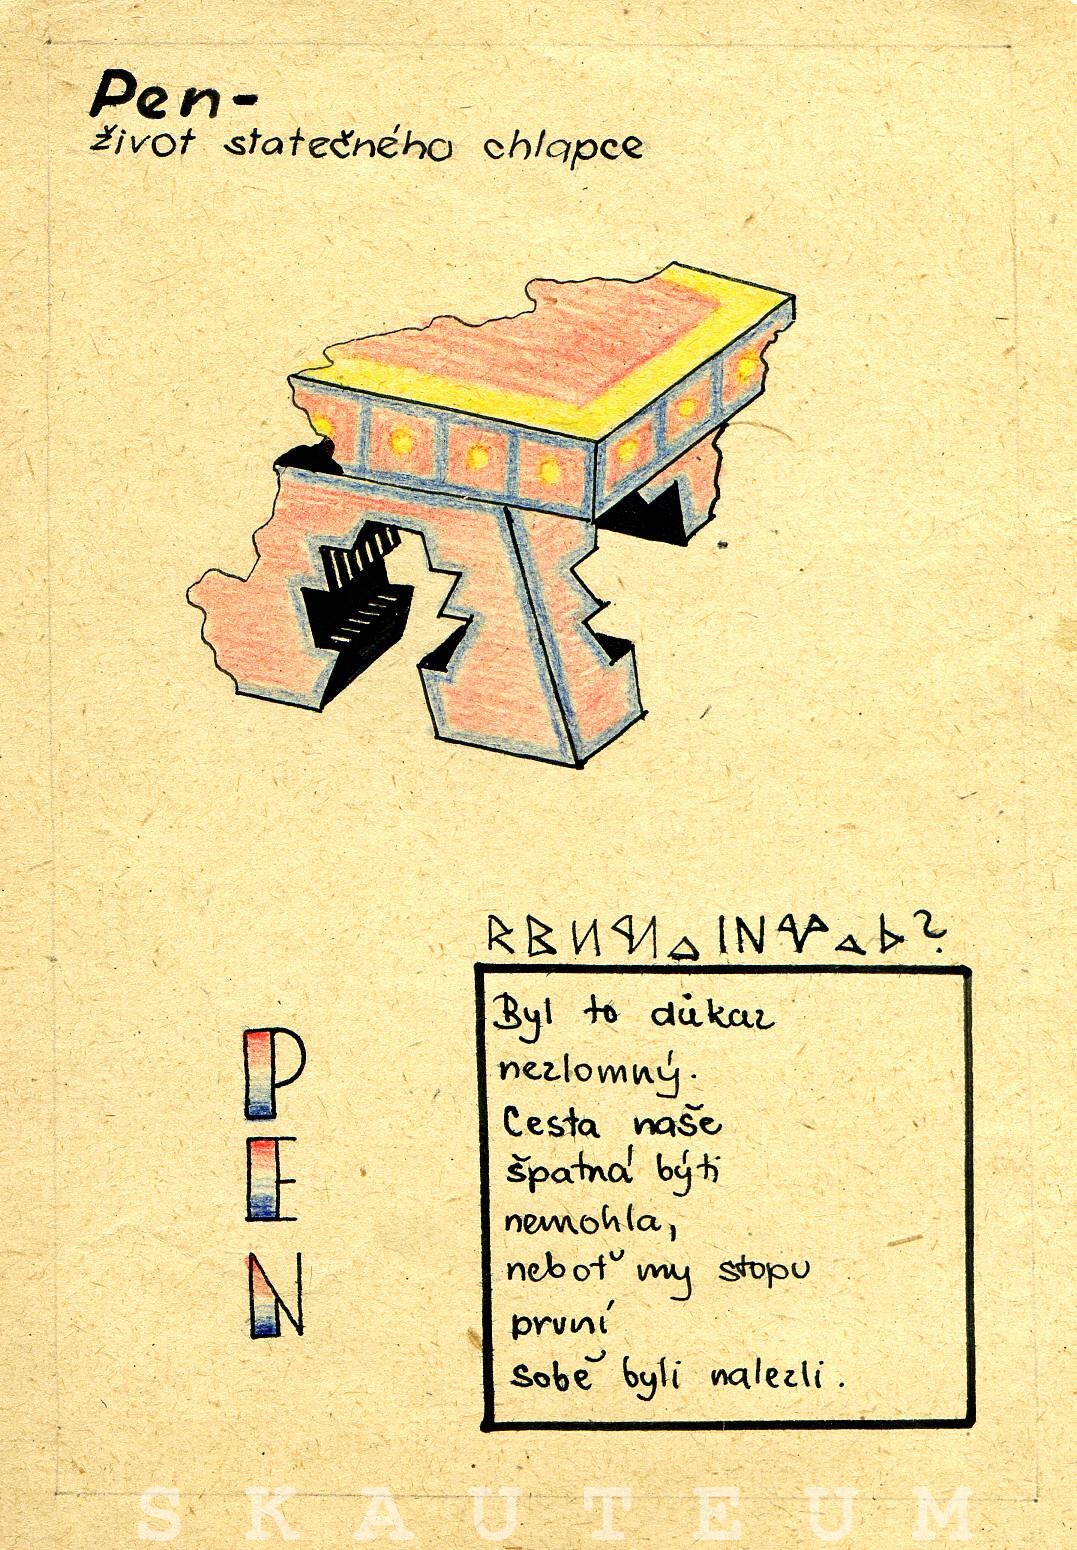 Pen-
život statečného chlapce
P
E
N
Byl to důkaz
nezlomný.
Cesta naše
špatná býti
nemohla,
neboť my stopu
první
sobě byli nalezli.
SKAUTEUM